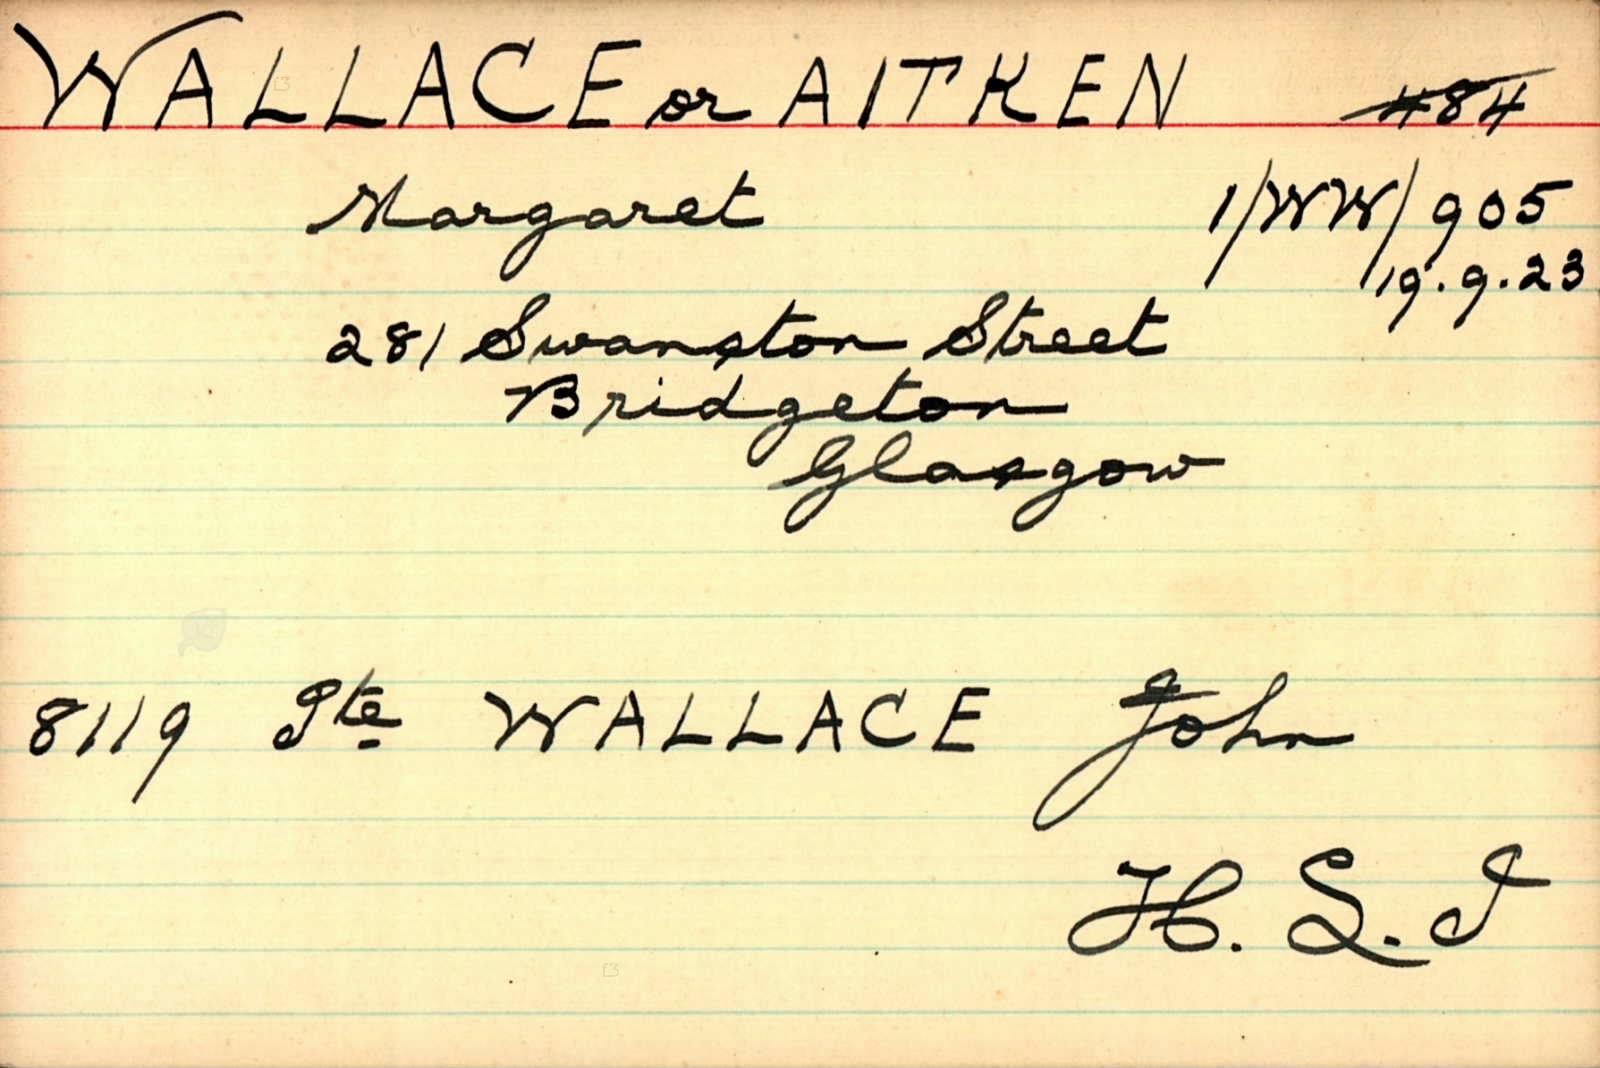 WALLACE or AITKEN 484
Margaret 1/WW/905
19.9.23
281 Swanston Street
Bridgeton
Glasgow
8119 Pte WALLACE John
H.L.I